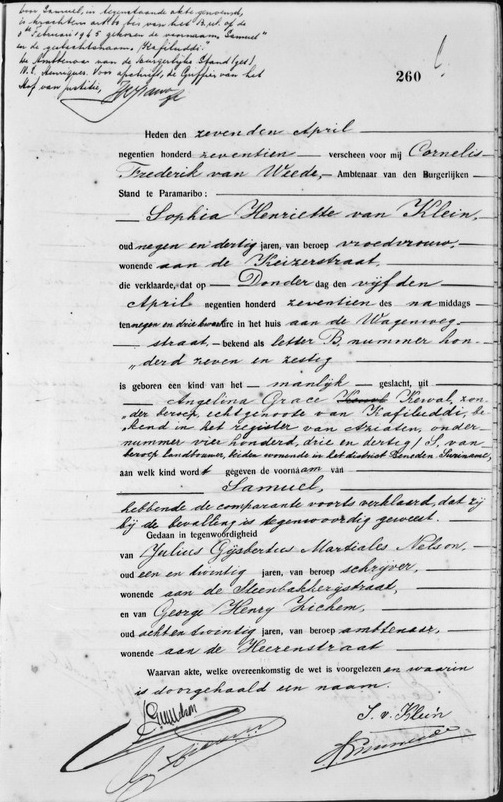 Voor Samuel, in tegenstaande akte genoemd,
is krachtens art. 10, bis van het B.v.t. of de
Februari 1965 gekozen de voornaam "Samuel"
en de geslachtsnaam "Kafiluddi."
De Ambtenaar van de Burgerlijke Stand (get)
Henriques. Voor afschrift, de Griffier van het
Hof van Justitie,
260
Heden den zevenden April
negentien honderd zeventien verscheen voor mij Cornelis
Frederik van Weede, Ambtenaar van den Burgerlijken
Stand te Paramaribo:
Sophia Henriette van Klein,
oud negen en dertig jaren, van beroep vroedvrouw,
wonende aan de Keizerstraat
die verklaarde, dat op Donder dag den vijfden
April negentien honderd zeventien des na middags
ten negen en drie kwart ure in het huis aan de Wagenweg
straat, bekend als letter B, nummer hon-
"derd zeven en zestig
is geboren een kind van het manlijk geslacht, uit
Angelina Grace Kewal, zon-
"der beroep, echtgenoote van Kafiluddi, be-
kend in het register van Aziaten, onder
nummer vier honderd, drie en dertig / S, van
beroep landbouwer, beiden wonende in het district Beneden Suriname,
aan welk kind wordt gegeven de voornaam van
Samuel,
hebbende de comparante voorts verklaard, dat zij
bij de bevalling is tegenwoordig geweest.
Gedaan in tegenwoordigheid
van Julius Gijsbertus Martiales Nelson,
oud een en twintig jaren, van beroep schrijver,
wonende aan de Steenbakkerijstraat,
en van George Henry Zichem,
oud acht en twintig jaren, van beroep ambtenaar,
wonende aan de Heerenstraat
Waarvan akte, welke overeenkomstig de wet is voorgelezen en waarin
is doorgehaald een naam.
S. v. Klein